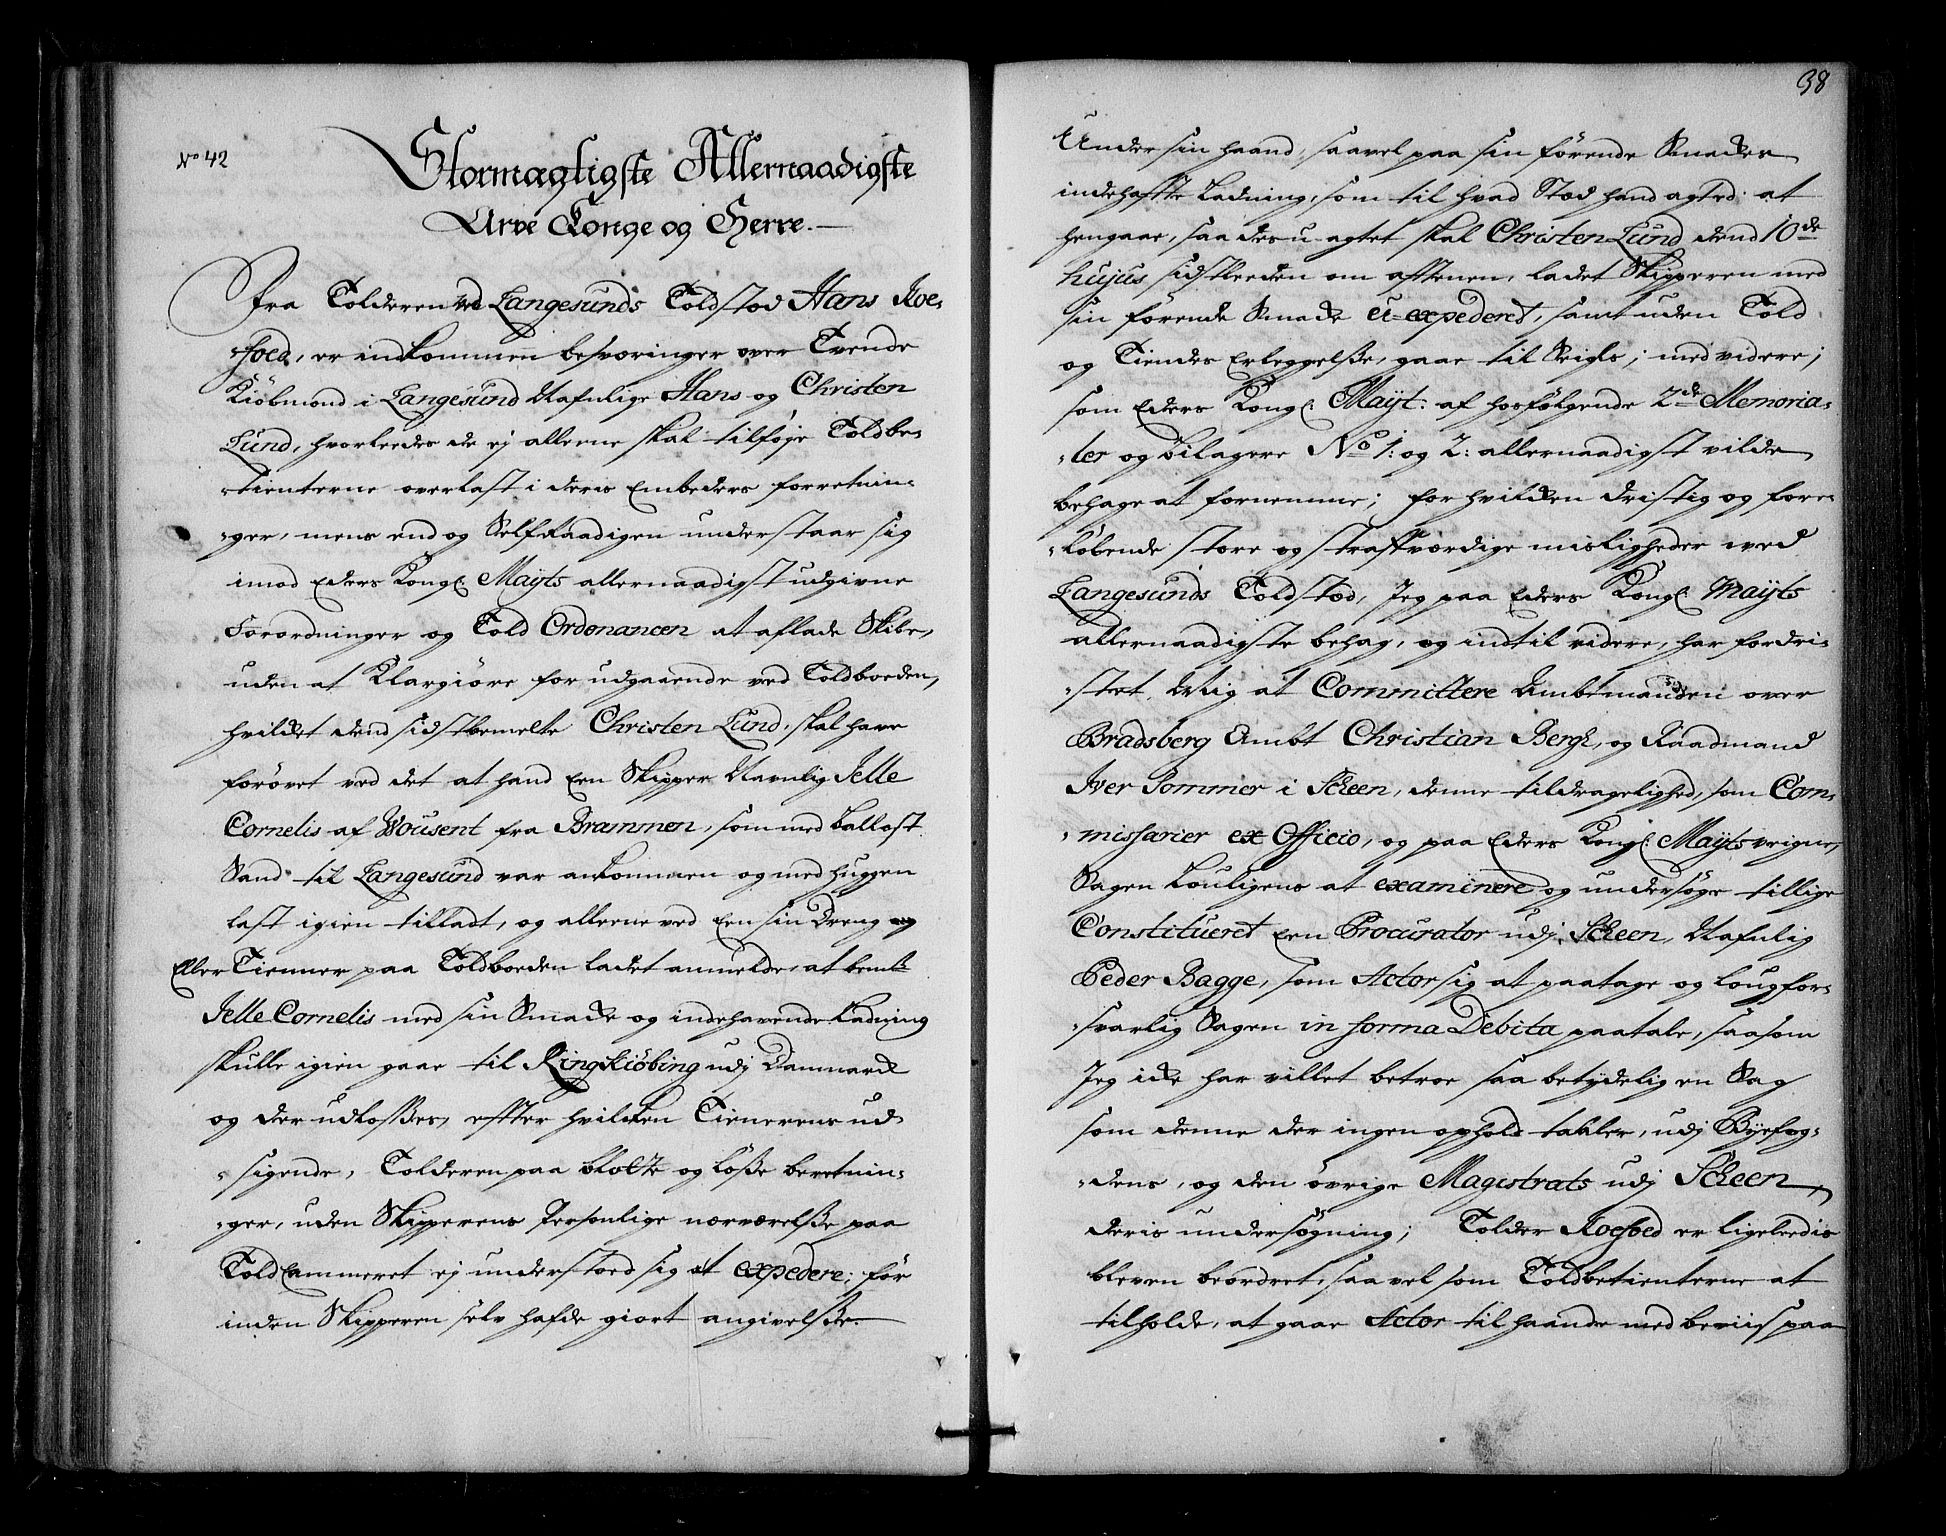 No 42
Stormægtigste Allernaadigste
Arve Konge og Herre.
Fra Tolderen ved Langesunds Toldstod Hans Roe-
-foed, er indkommen besværinger over Tvende
Kiöbmænd i Langesund Nafnlige Hans og Christen
Lund, hvorleedes de ej alleene skal tilföje Toldbe-
-tienterne overlast i deris Embeders forretnin-
-ger, mens end og Selfraadigen understaar sig
imod Eders Kongl: Mayts allernaadigst udgivne
Forordninger og Told Ordonancen at aflade Skibe,
uden at Klargiöre for udgaaende ved Toldboeden,
hvilket dend sidstbemelte Christen Lund, skal have
forövet ved det at hand Een Skipper Navnlig Jelle
Cornelis af Wousent fra Brammen, som med Ballast
Sand til Langesund var ankommen og med huggen
last igien tilladt, og alleene ved Een sin Dreng
Eller Tienner paa Toldboeden ladet anmelde, at bemte
Jelle Cornelis med sin Smacke og indehavende Ladning
skulle igien gaae til Ringkiöbing udj Dannmarck
og der udlosses, effter hvilcken Tienerens ud-
-sigende, Tolderen paa blotte og löse beretnin-
-ger, uden Skipperens Personlige nærværelse paa
Told Cammeret ej understoed sig at expedere, för
inden Skipperen selv hafde giort angivelse.
38
Under sin haand, saavel paa sin förende Smackes
indehaffte Ladning, som til hvad Stæd hand agted at
hengaae, saa des u-agtet skal Christen Lund dend 10de
hujus sidstleeden om afftenen, ladet Skipperen med
sin förende Smacke u-expederet, samt uden Told
og Tiendes Erleggelse, gaae til Seigls; med videre;
som Eders Kongl: Mayt: af hosfölgende 2de Memoria-
-ler og bilagene No 1: og 2: allernaadigst vilde
behage at fornemme; for hvilcken dristig og fore-
-löbende store og straffværdige misligheder ved
Langesunds Toldstæd, Jeg paa Eders Kongl: Mayts
allernaadigste behag, og indtil videre, har fordri-
-stet Mig at Committere Ambtmanden over
Bradsberg Ambt Christian Bergh, og Raadmand
Iver Sommer i Scheen, denne tildragelighed, som Com-
-missarier ex Officio, og paa Eders Kongl: Mayts veigne,
Sagen Louligens at examinere og undersöge tillige
Constitueret Een Procurator udj Scheen, Nafnlig
Peder Bagge, som Actor sig at paatage og lougfor-
-svarlig Sagen in forma Debita paatale, saasom
Jeg icke har villet betroe saa betydelig en Sag
som denne der ingen ophold taaler, udj Byefog-
-dens, og den övrige Magistrats udj Scheen,
deris undersögning; Tolder Roefoed er ligeleedis
bleven beordret, saavel som Toldbetienterne at
tilholde, at gaae Actor til haande med beviis paa